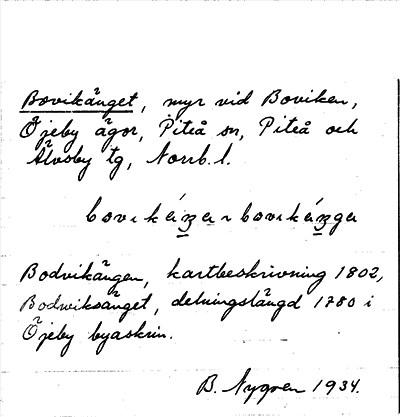 Bovikänget, myr vid Boviken,
Öjeby ägor, Piteå sn, Piteå och
Älvsby tg, Norrb. l.
bovikäŋa ~ bovikäŋga
Bodvikängen, kartbeskrivning 1802,
Bodwiksänget, delningslängd 1780 i
Öjeby byaskrin.
B. Nygren 1934.